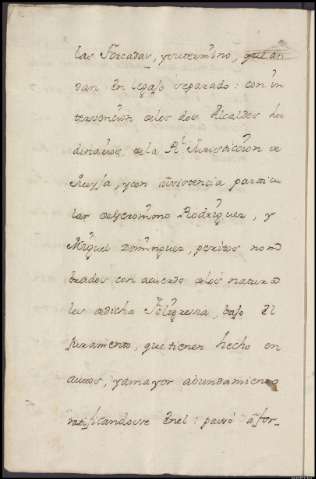 las Arcadas, y su termino, que an
dan en legajo separado: con in
tervencion de los dos Alcaldes hor
dinarios de la Rl. Jurisdiccion de
y con assistencia particu
lar de Geronimo Rodriguez, y
Miguel Dominguez, peritos nom
brados con acuerdo de los natura
les de dicha Feligresia, bajo el
juramento, que tienen hecho en
autos, y a mayor abundamiento
ratificandose en el: passó a for-